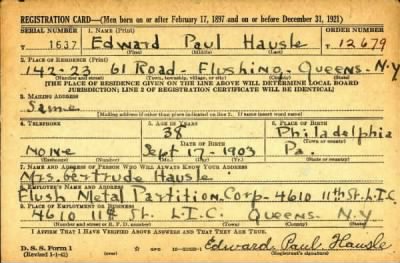 REGISTRATION CARD—(Men born on or after February 17, 1897 and on or before December 31, 1921)
SERIAL NUMBER 1. NAME (Print) ORDER NUMBER
1637 Edward Paul Hausle 12679
(First) (Middle) (Last)
2. PLACE OF RESIDENCE (Print)
142-23 61 Road - Flushing Queens - N.Y
(Number and street) (Town, township, village, or city) (County) (State)
[THE PLACE OF RESIDENCE GIVEN ON THE LINE ABOVE WILL DETERMINE LOCAL BOARD
JURISDICTION; LINE 2 OF REGISTRATION CERTIFICATE WILL BE IDENTICAL]
3. MAILING ADDRESS
Same
[Mailing address if other than place indicated on line 2. If same insert word same]
4. TELEPHONE 5. AGE IN YEARS 6. PLACE OF BIRTH
38 Philadelphia
DATE OF BIRTH
None Sept 17 - 1903 Pa.
7. NAME AND ADDRESS OF PERSON WHO WILL ALWAYS KNOW YOUR ADDRESS
Mrs. Gertrude Hausle
8. EMPLOYER'S NAME AND ADDRESS
Flush Metal Partition Corp - 4610 11th St. L.I.C.
9. PLACE OF EMPLOYMENT OR BUSINESS
4610 11th St. L.I.C. Queens. N.Y
(Number and street or R. F. D. number) (Town) (County) (State)
I AFFIRM THAT I HAVE VERIFIED ABOVE ANSWERS AND THAT THEY ARE TRUE.
D. S. S. Form 1
(Revised 1-1-42) Edward Paul Hausle
(Registrant's signature)